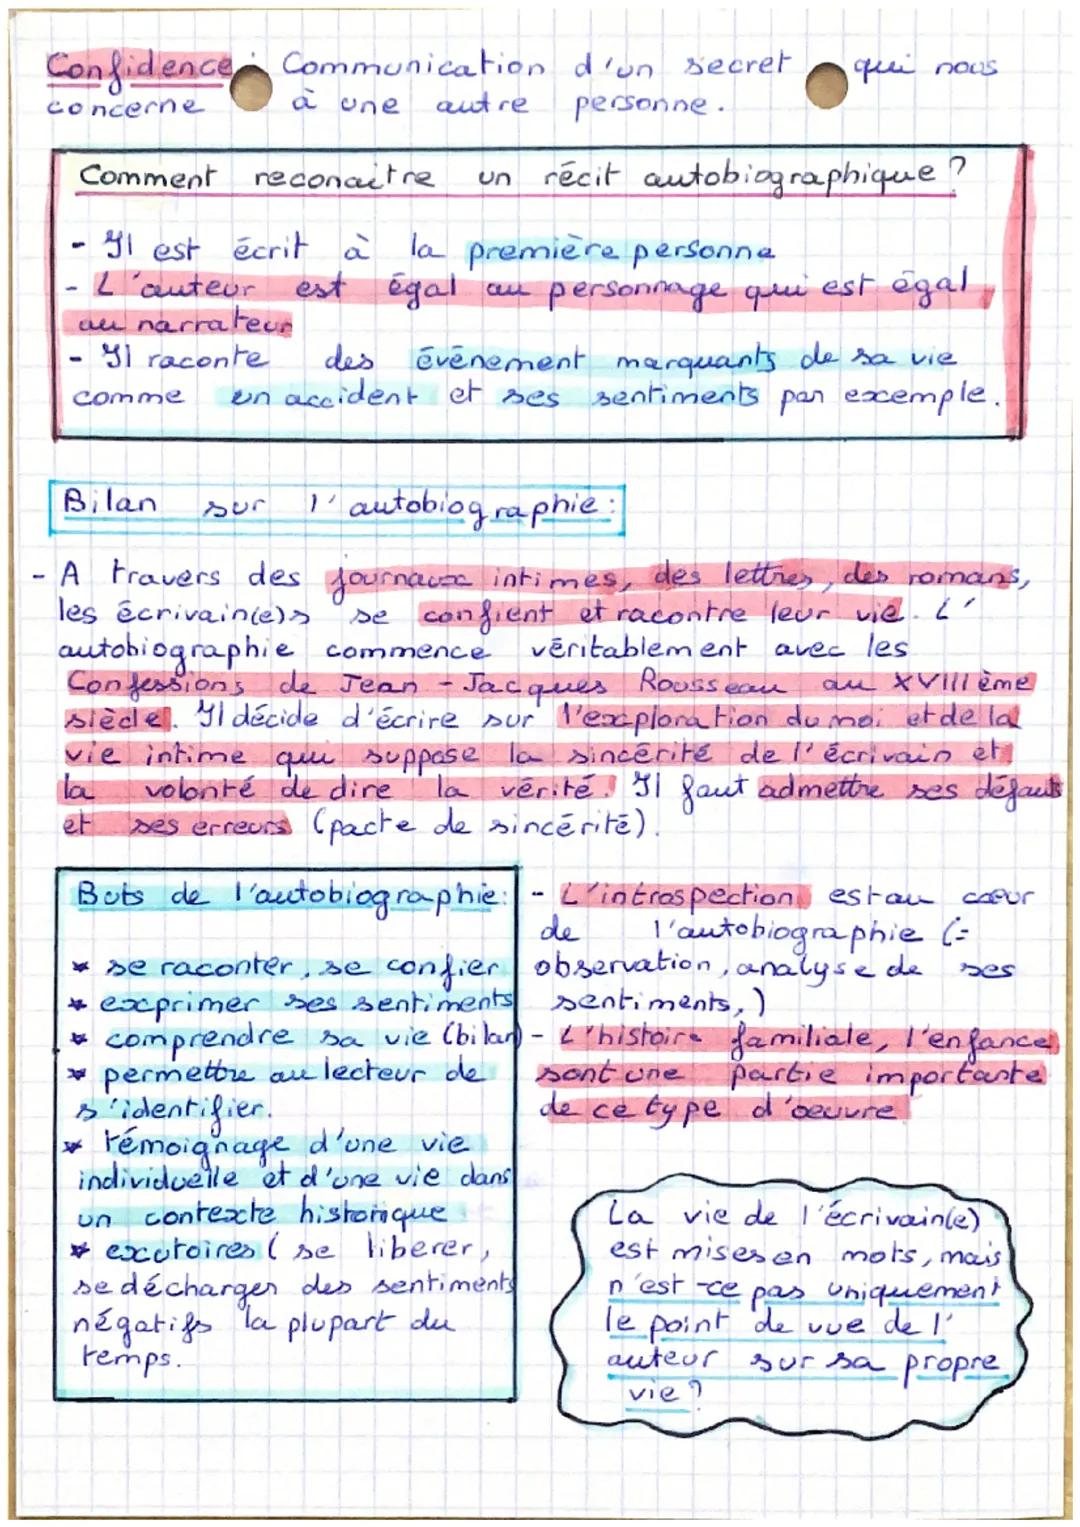 Confidence : Communication d'un secret qui nous
concerne à une autre personne.
Comment reconaitre un récit autobiographique ?
- Il est écrit à la première personne
- L'auteur est égal au personnage qui est égal
au narrateur
- Il raconte des événement marquants de sa vie
comme un accident et ses sentiments par exemple.
Bilan sur l'autobiographie :
- A travers des journaux intimes, des lettres, des romans,
les écrivain(e)s se confient et racontre leur vie. L'
autobiographie commence véritablement avec les
Confessions de Jean-Jacques Rousseau au XVIIIème
siècle. Il décide d'écrire sur l'exploration du moi et de la
vie intime qui suppose la sincérité de l'écrivain et
la volonté de dire la vérité. Il faut admettre ses défauts
et ses erreurs (pacte de sincérité).
Buts de l'autobiographie :
* se raconter, se confier
* exprimer ses sentiments
* comprendre sa vie (bilan)
* permettre au lecteur de
s'identifier.
* témoignage d'une vie
individuelle et d'une vie dans
un contexte historique
* exutoires ( se liberer,
se décharger des sentiments
négatifs la plupart du
temps.
- L'introspection est au cœur
de l'autobiographie (=
observation, analyse de ses
sentiments,)
- L'histoire familiale, l'enfance
sont une partie importante
de ce type d'oeuvre
La vie de l'écrivain(e)
est mises en mots, mais
n'est-ce pas uniquement
le point de vue de l'
auteur sur sa propre
vie ?